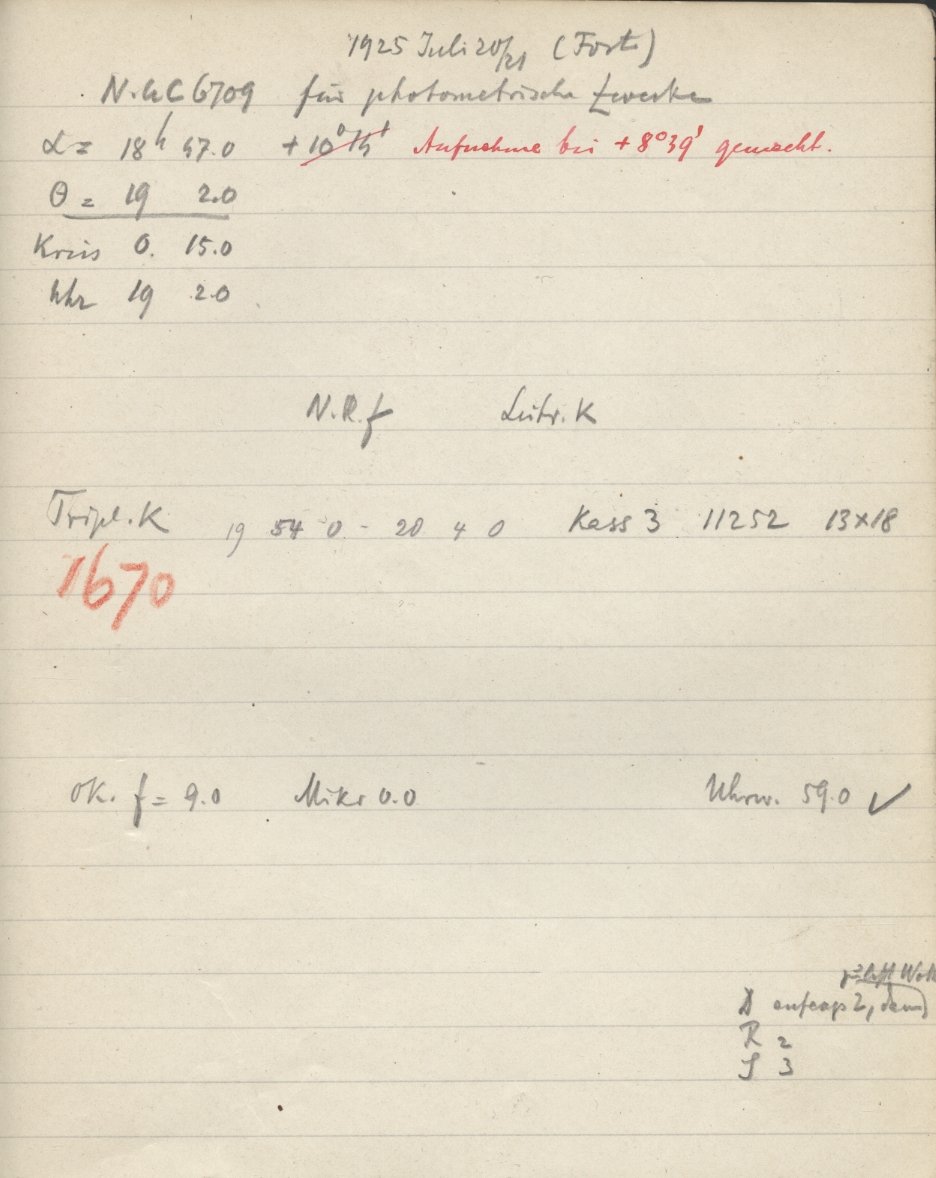 1925 Juli 20/21 (Forts)
N.G.C 6709 für photometrische Zwecke
α = 18h 47.0 + 10° 15' Aufnahme bei + 8° 39' gemacht.
θ = 19 2.0
Kreis 0. 15.0
Uhr 19 2.0
N.R.f Leitr. K
Tripl. K 19 54 0 - 20 4 0 Kass 3 11252 13×18
1670
Ok. f = 9.0 Mikr 0.0 Uhrw. 59.0 ✓
D anfangs 2, dann
R 2
S 3